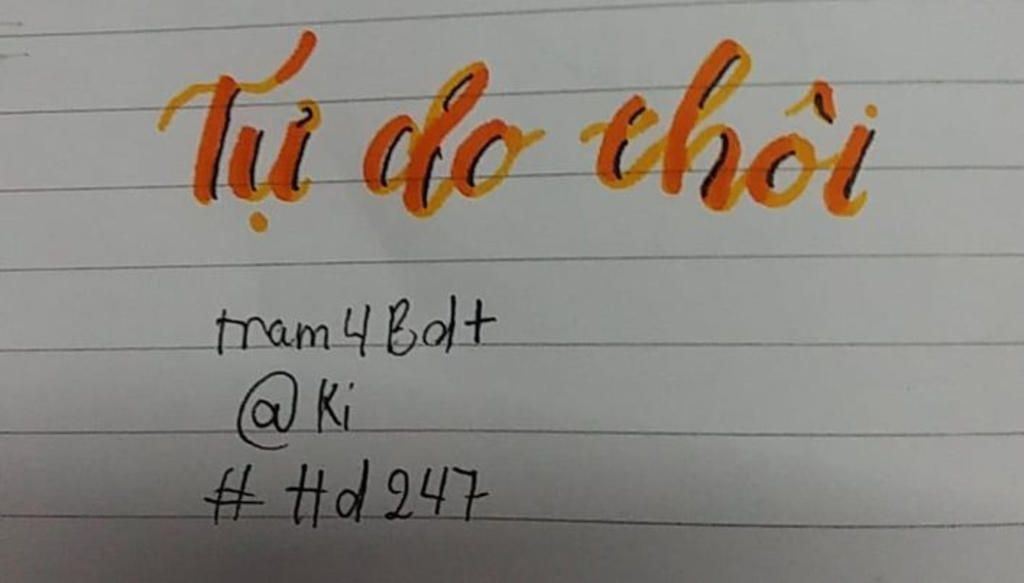 Tự do thôi
tram4Bdt
@Ki
#Hd247